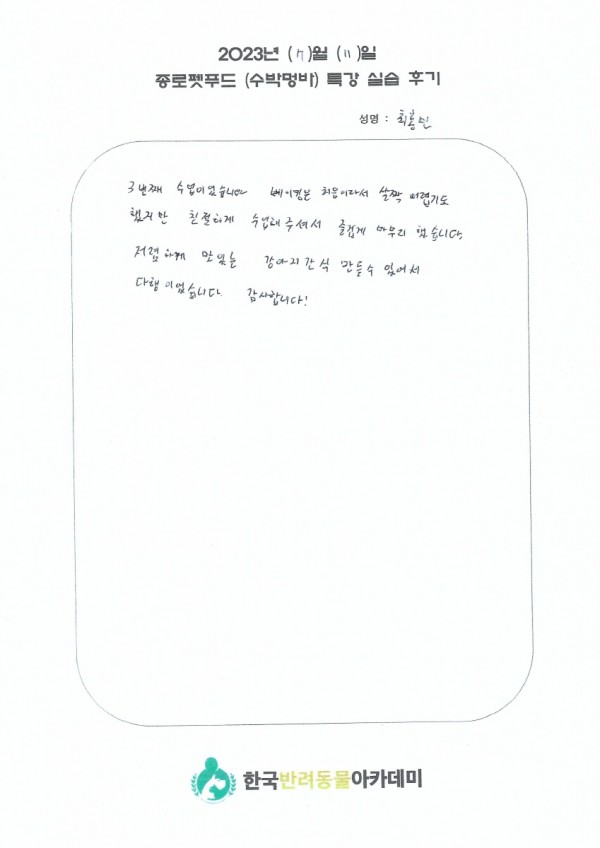 2023년 (7)월 (11)일
종로펫푸드 (수박멍바) 특강 실습 후기
성명 : 최봉민
3번째 수업이었습니다 베이킹은 처음이라서 살짝 어렵기도
했지만 친절하게 수업해주셔서 즐겁게 마무리 했습니다.
저렴하게 맛있는 강아지간식 만들수 있어서
다행이었습니다. 감사합니다!
한국반려동물아카데미